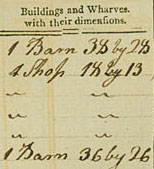 Buildings and Wharves.
with their dimensions.
1 Barn 38 by 28
1 Shop 18 by 13
" "
" "
" "
1 Barn 36 by 26